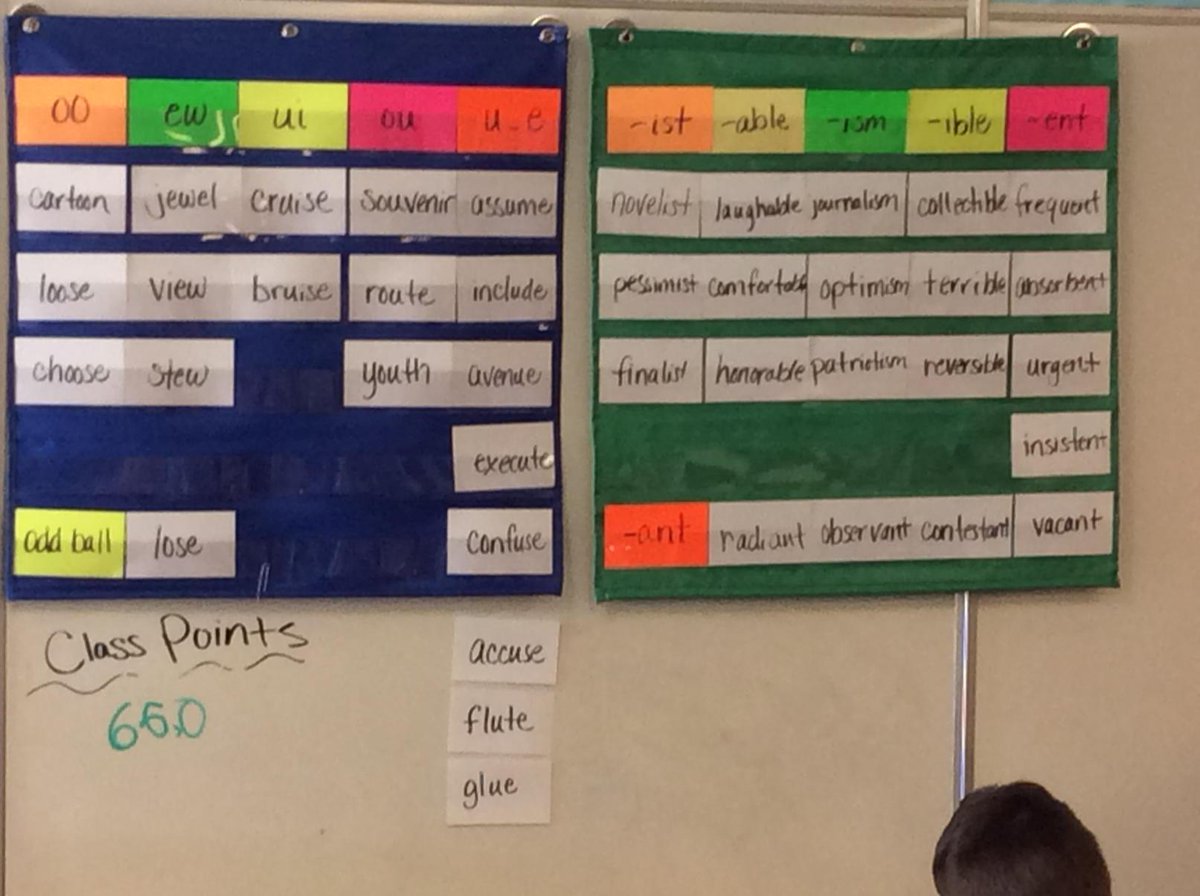 oo ew ui ou u_e
cartoon jewel cruise souvenir assume
loose view bruise route include
choose stew youth avenue
execute
odd ball lose confuse
accuse
flute
glue
Class Points
650
-ist -able -ism -ible -ent
novelist laughable journalism collectible frequent
pessimist comfortable optimism terrible absorbent
finalist honorable patriotism reversible urgent
insistent
-ant radiant observant contestant vacant